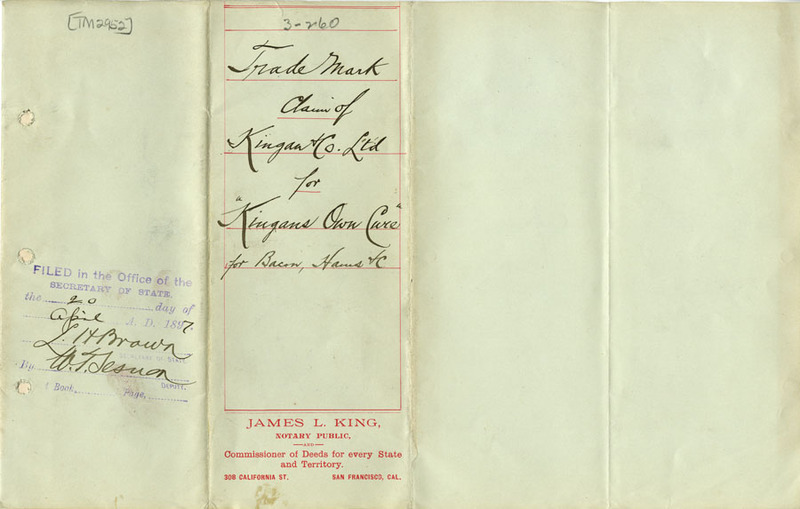 [TM2952]
FILED in the Office of the
SECRETARY OF STATE.
the 20 day of
April A. D. 1897.
L. H. Brown
SECRETARY OF STATE
By W. T. Sesnon
DEPUTY.
Book, Page,
3-260
Trade Mark
Claim of
Kingan & Co. Lt'd
for
"Kingans Own Cure"
for Bacon, Hams &C
JAMES L. KING,
NOTARY PUBLIC,
—AND—
Commissioner of Deeds for every State
and Territory.
308 CALIFORNIA ST. SAN FRANCISCO, CAL.